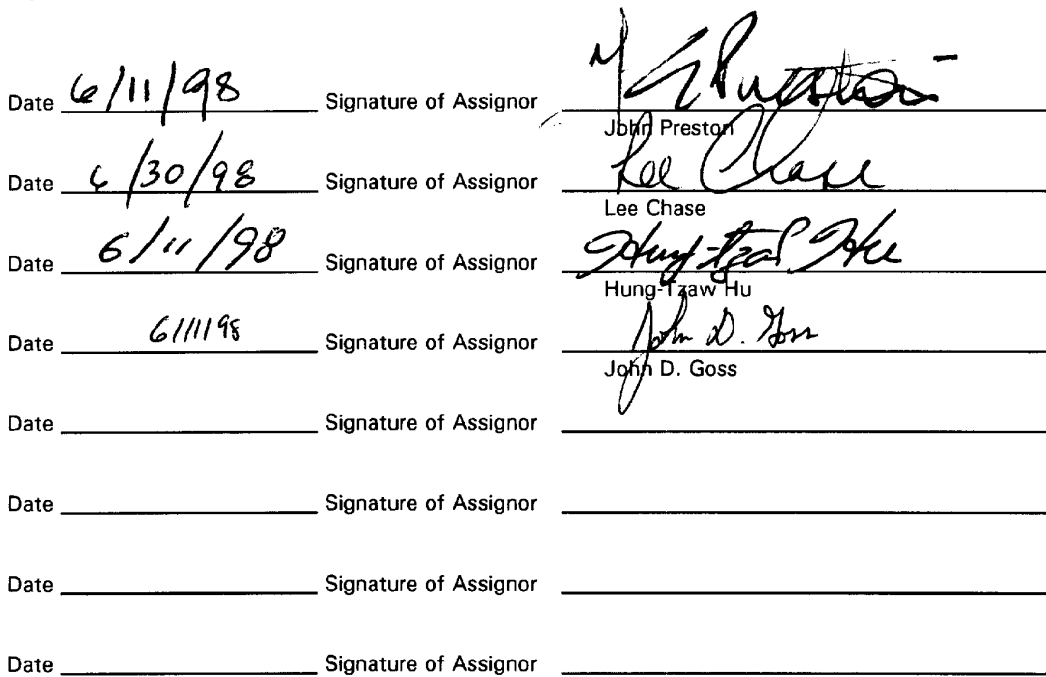 Date 6/11/98 Signature of Assignor
John Preston
Date 6/30/98 Signature of Assignor Lee Chase
Lee Chase
Date 6/11/98 Signature of Assignor Hung-Tzaw Hu
Hung-Tzaw Hu
Date 6/11/98 Signature of Assignor John D. Goss
John D. Goss
Date Signature of Assignor
Date Signature of Assignor
Date Signature of Assignor
Date Signature of Assignor